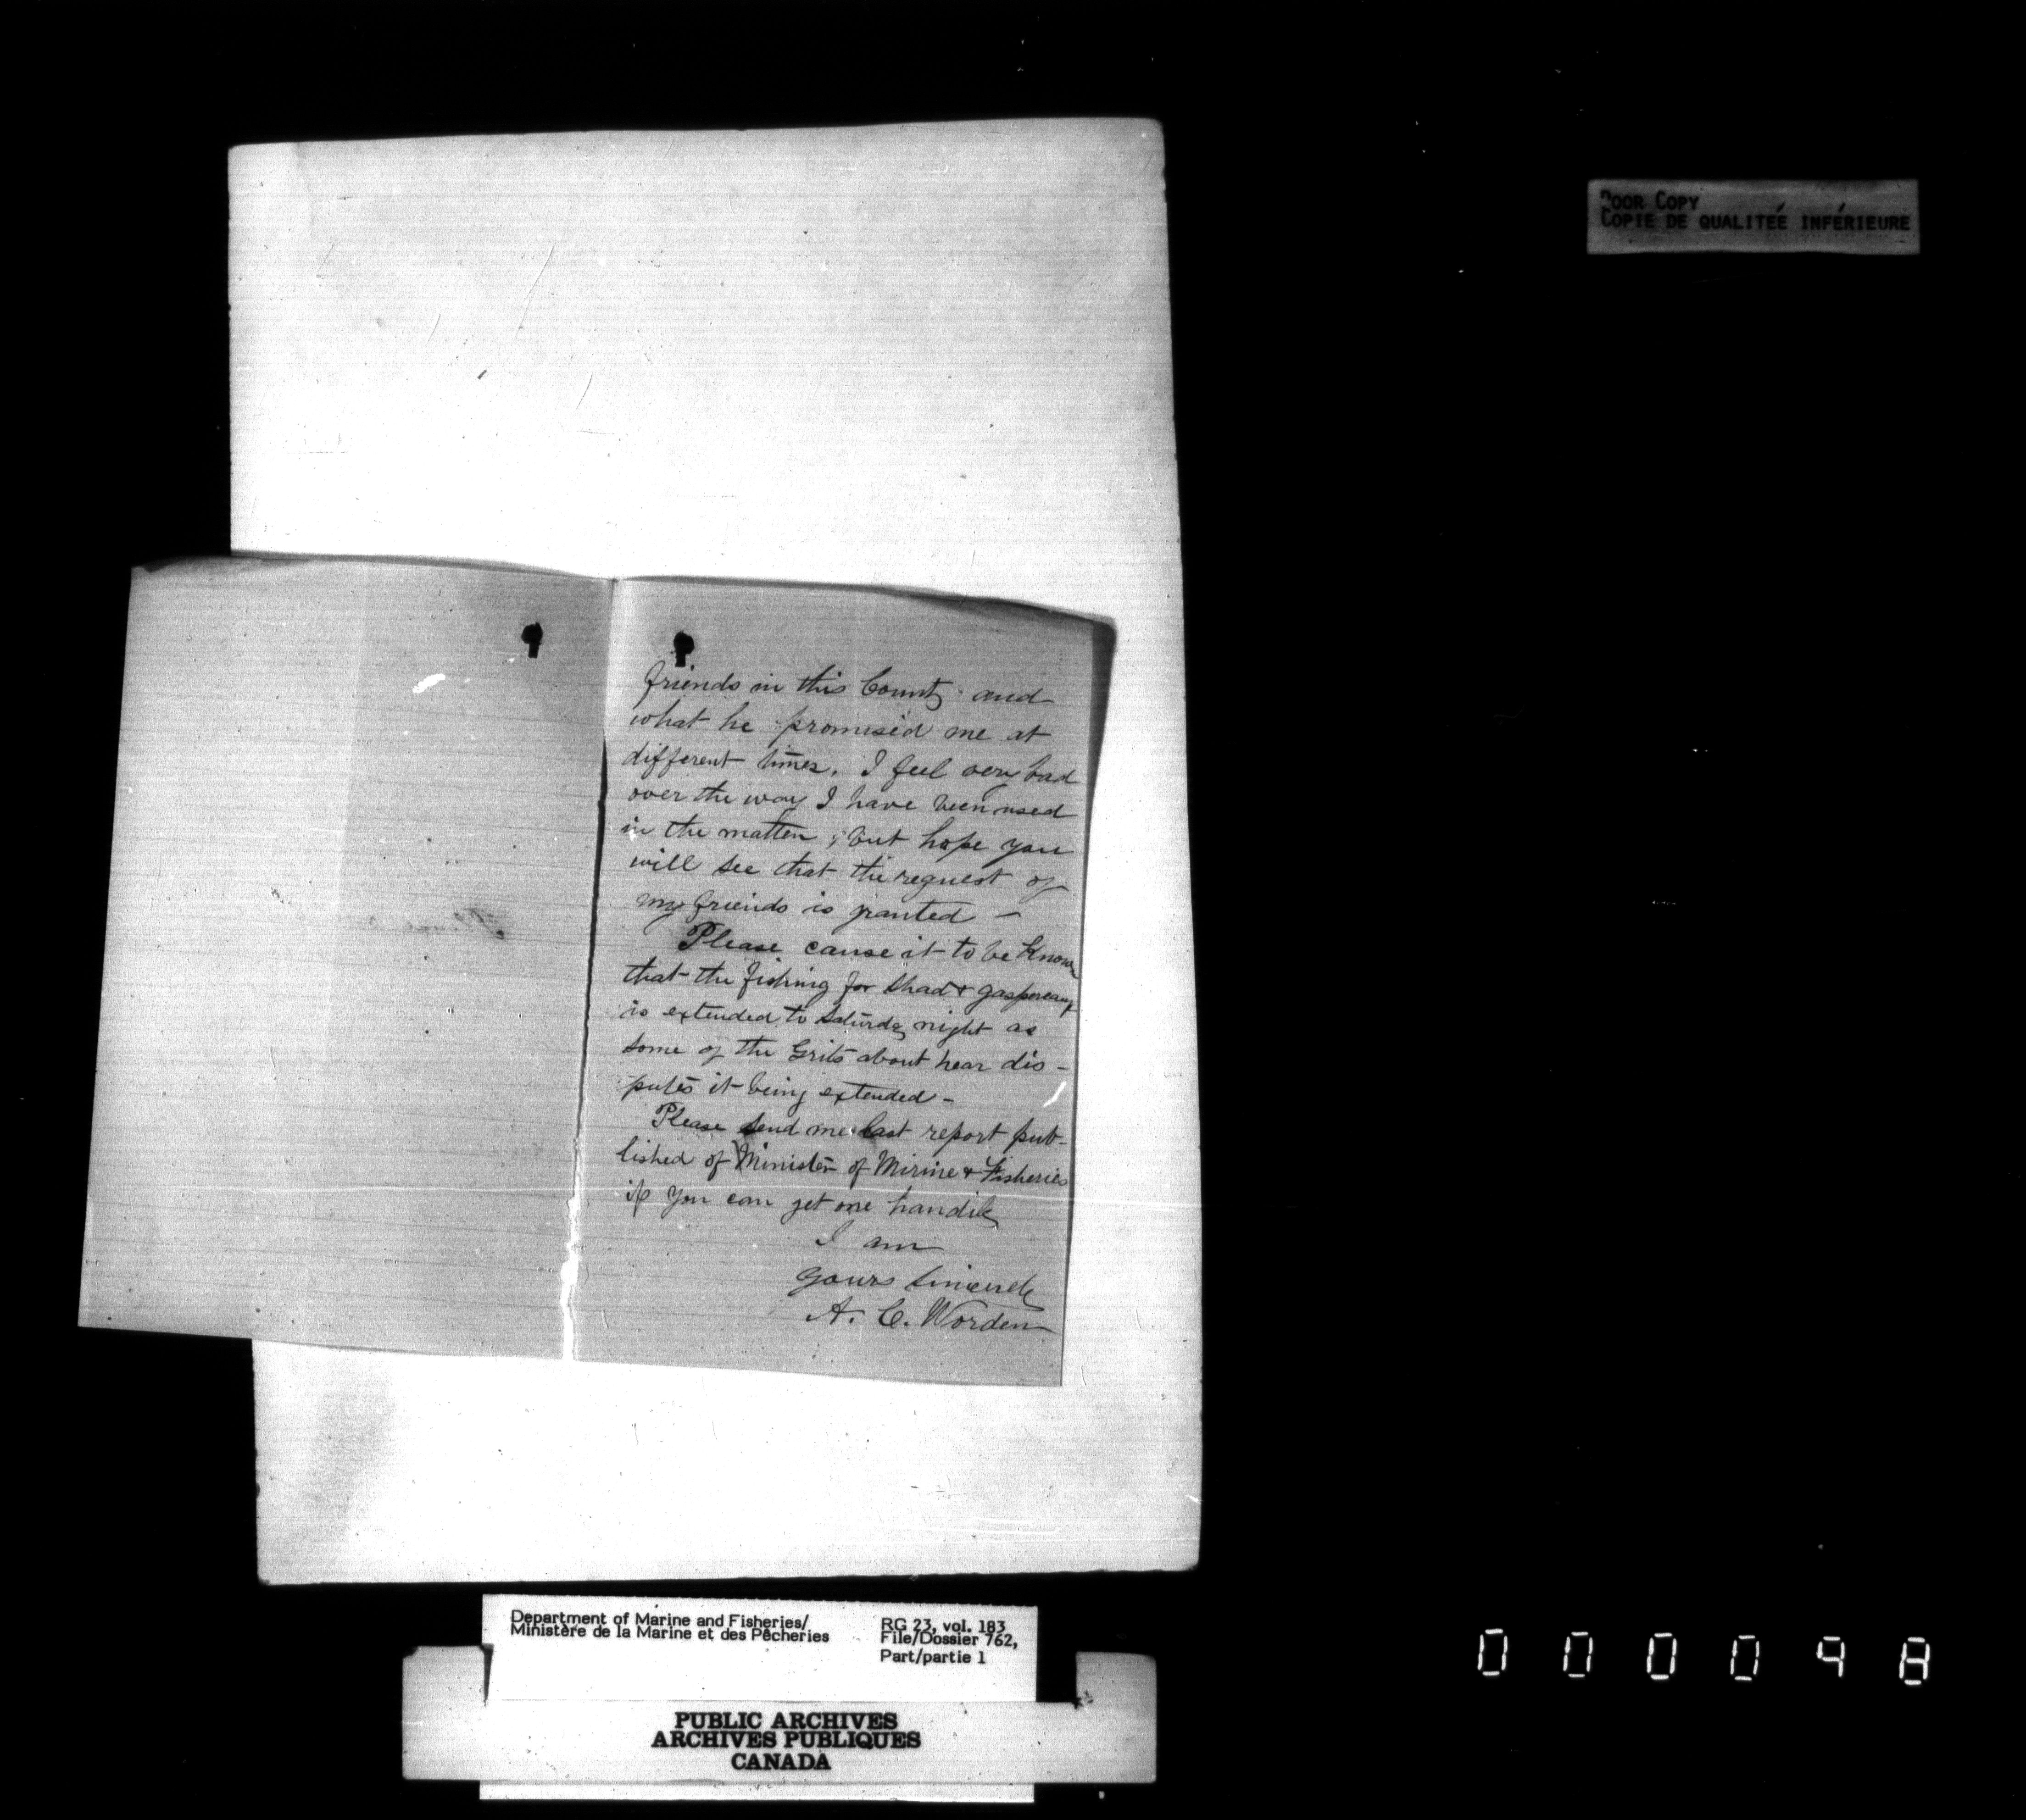 POOR COPY
COPIE DE QUALITEÉ INFÉRIEURE
friends in this County and
what he promised me at
different times. I feel very bad
over the way I have been used
in the matter ; but hope you
will see that the request of
my friends is granted —
Please cause it to be Known
that the fishing for Shad & gaspereaux
is extended to Saturday night as
some of the Grits about hear dis-
putes it being extended -
Please send me last report pub-
lished of Minister of Mirine & Fisheries
if you can get one handily
I am
Yours Sincerely
A. C. Worden
Department of Marine and Fisheries/
Ministère de la Marine et des Pêcheries
RG 23, vol. 183
File/Dossier 762,
Part/partie 1
PUBLIC ARCHIVES
ARCHIVES PUBLIQUES
CANADA
000098